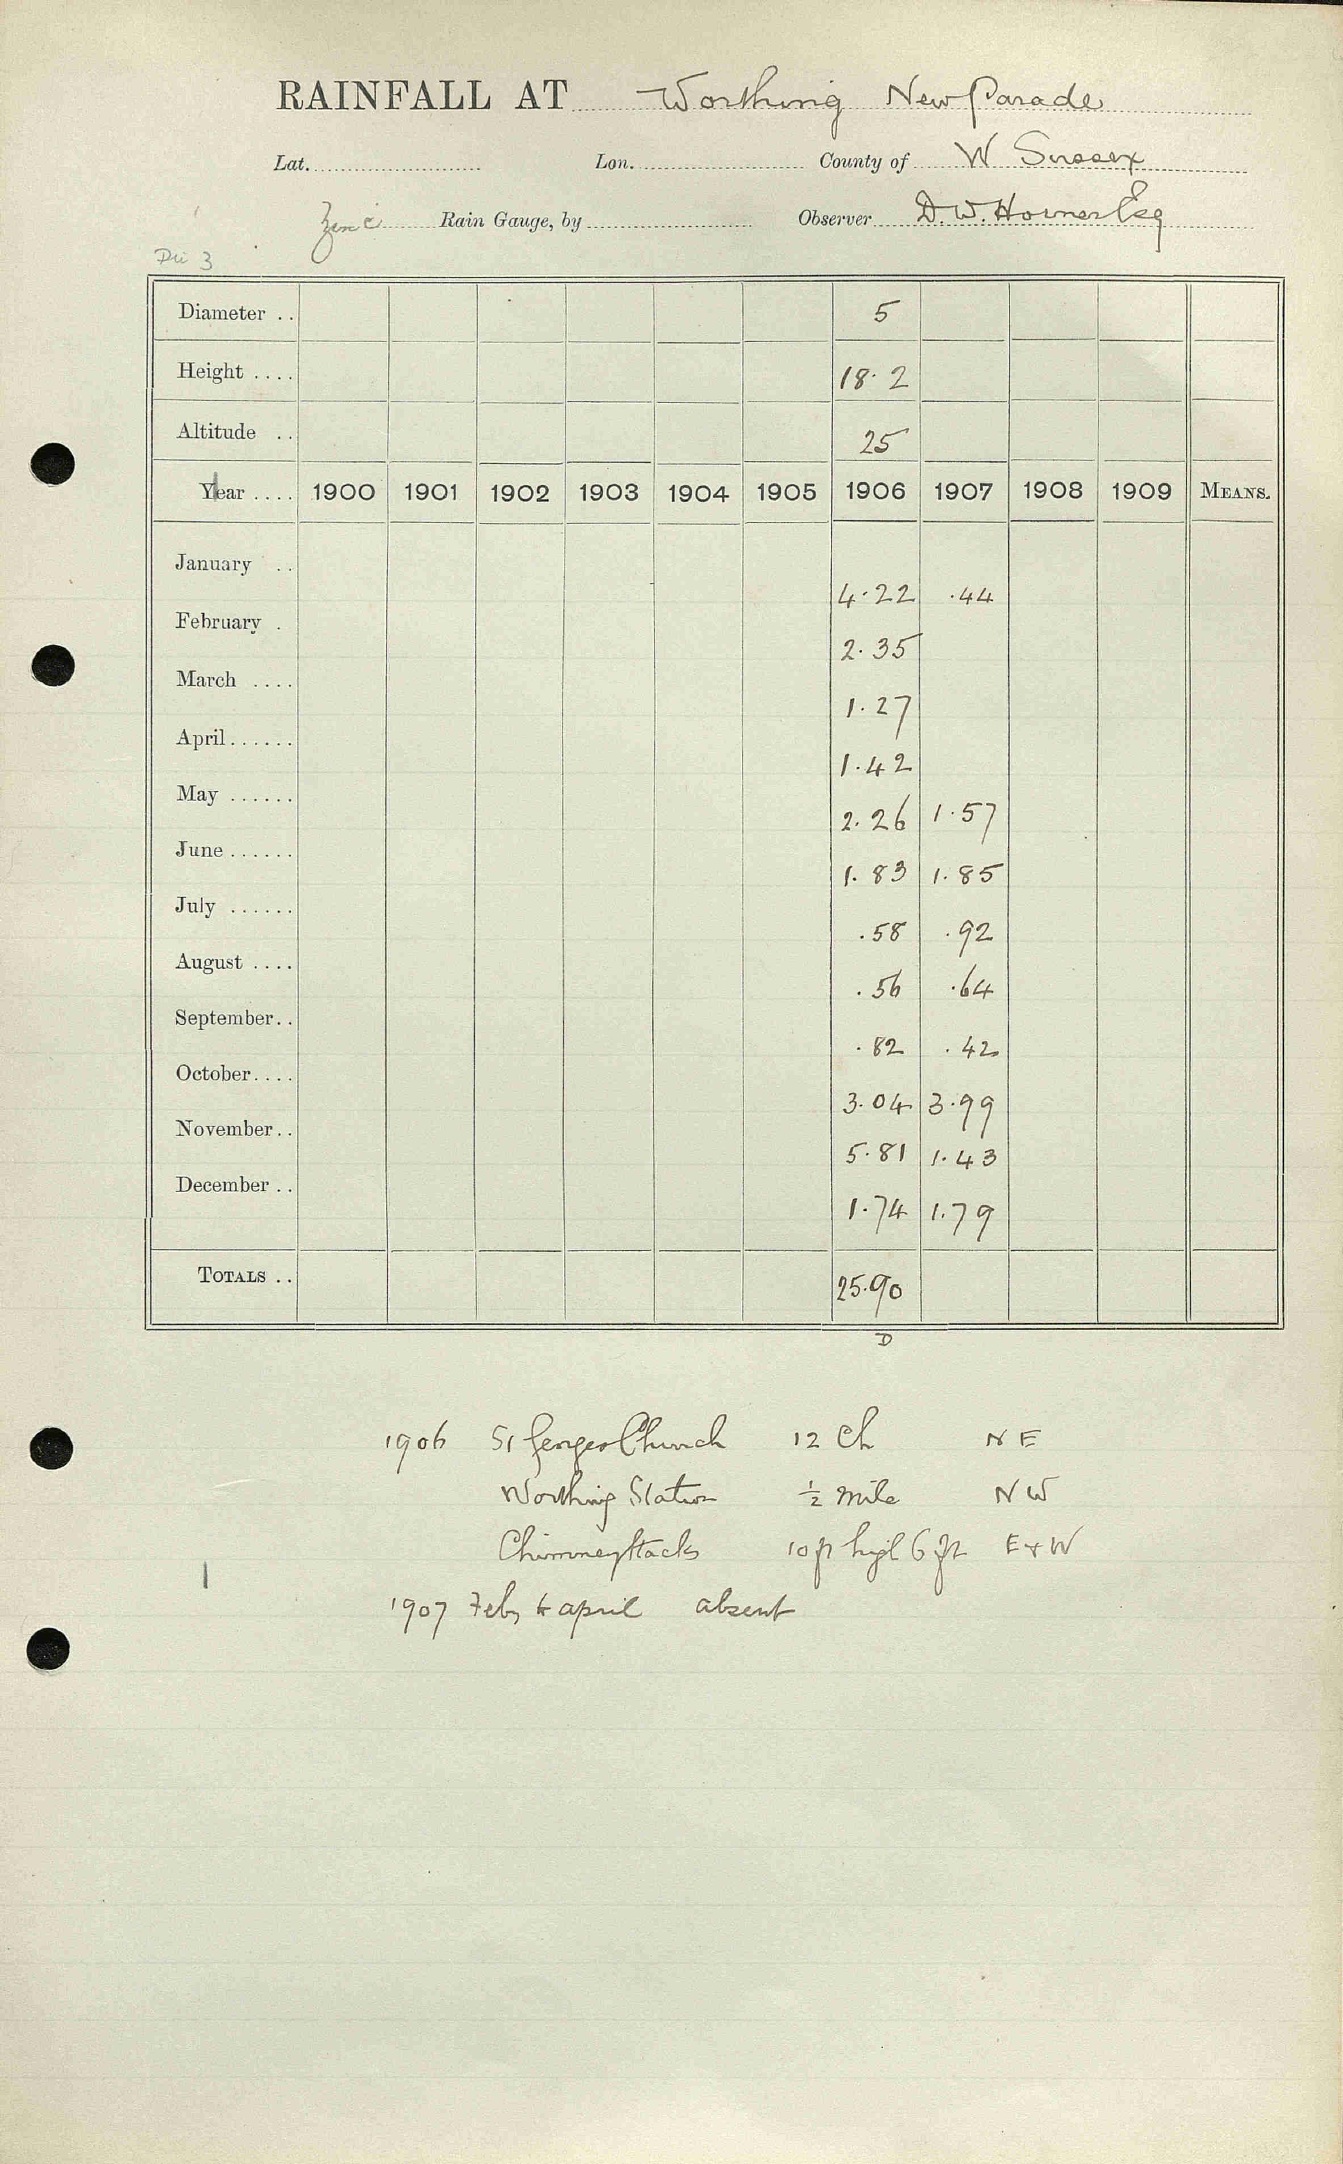 RAINFALL AT Worthing New Parade
Lat. Lon. County of W Sussex
Zinc Rain Gauge, by Observer D.W. Horner Esq
Diameter .. 5
Height .... 18.2
Altitude .. 25
Year .... 1900 1901 1902 1903 1904 1905 1906 1907 1908 1909 MEANS.
January .. 4.22 .44
February . 2.35
March .... 1.27
April...... 1.42
May ...... 2.26 1.57
June ...... 1.83 1.85
July ...... .58 .92
August .... .56 .64
September.. .82 .42
October.... 3.04 3.99
November.. 5.81 1.43
December .. 1.74 1.79
TOTALS .. 25.90
D
1906 St Georges Church 12 Ch NE
Worthing Station ½ mile NW
Chimneystacks 10 ft high 6 ft E & W
1907 Feb, to april absent